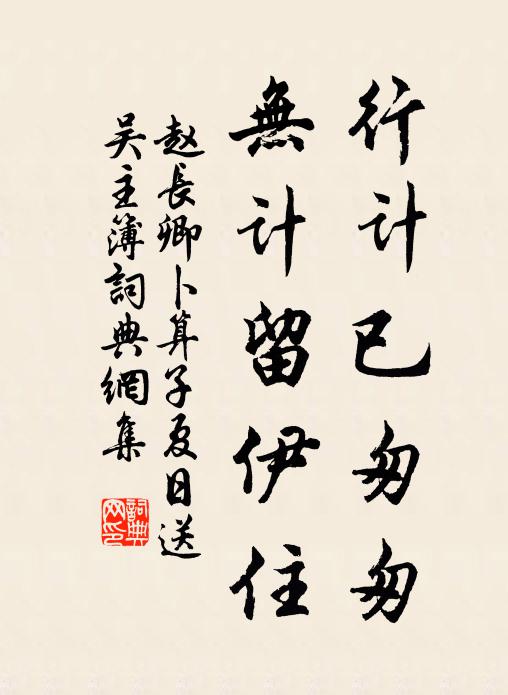 行计已匆匆
無计留伊住
赵長卿卜算子夏日送
吴主簿詞典網集
詞典
网印